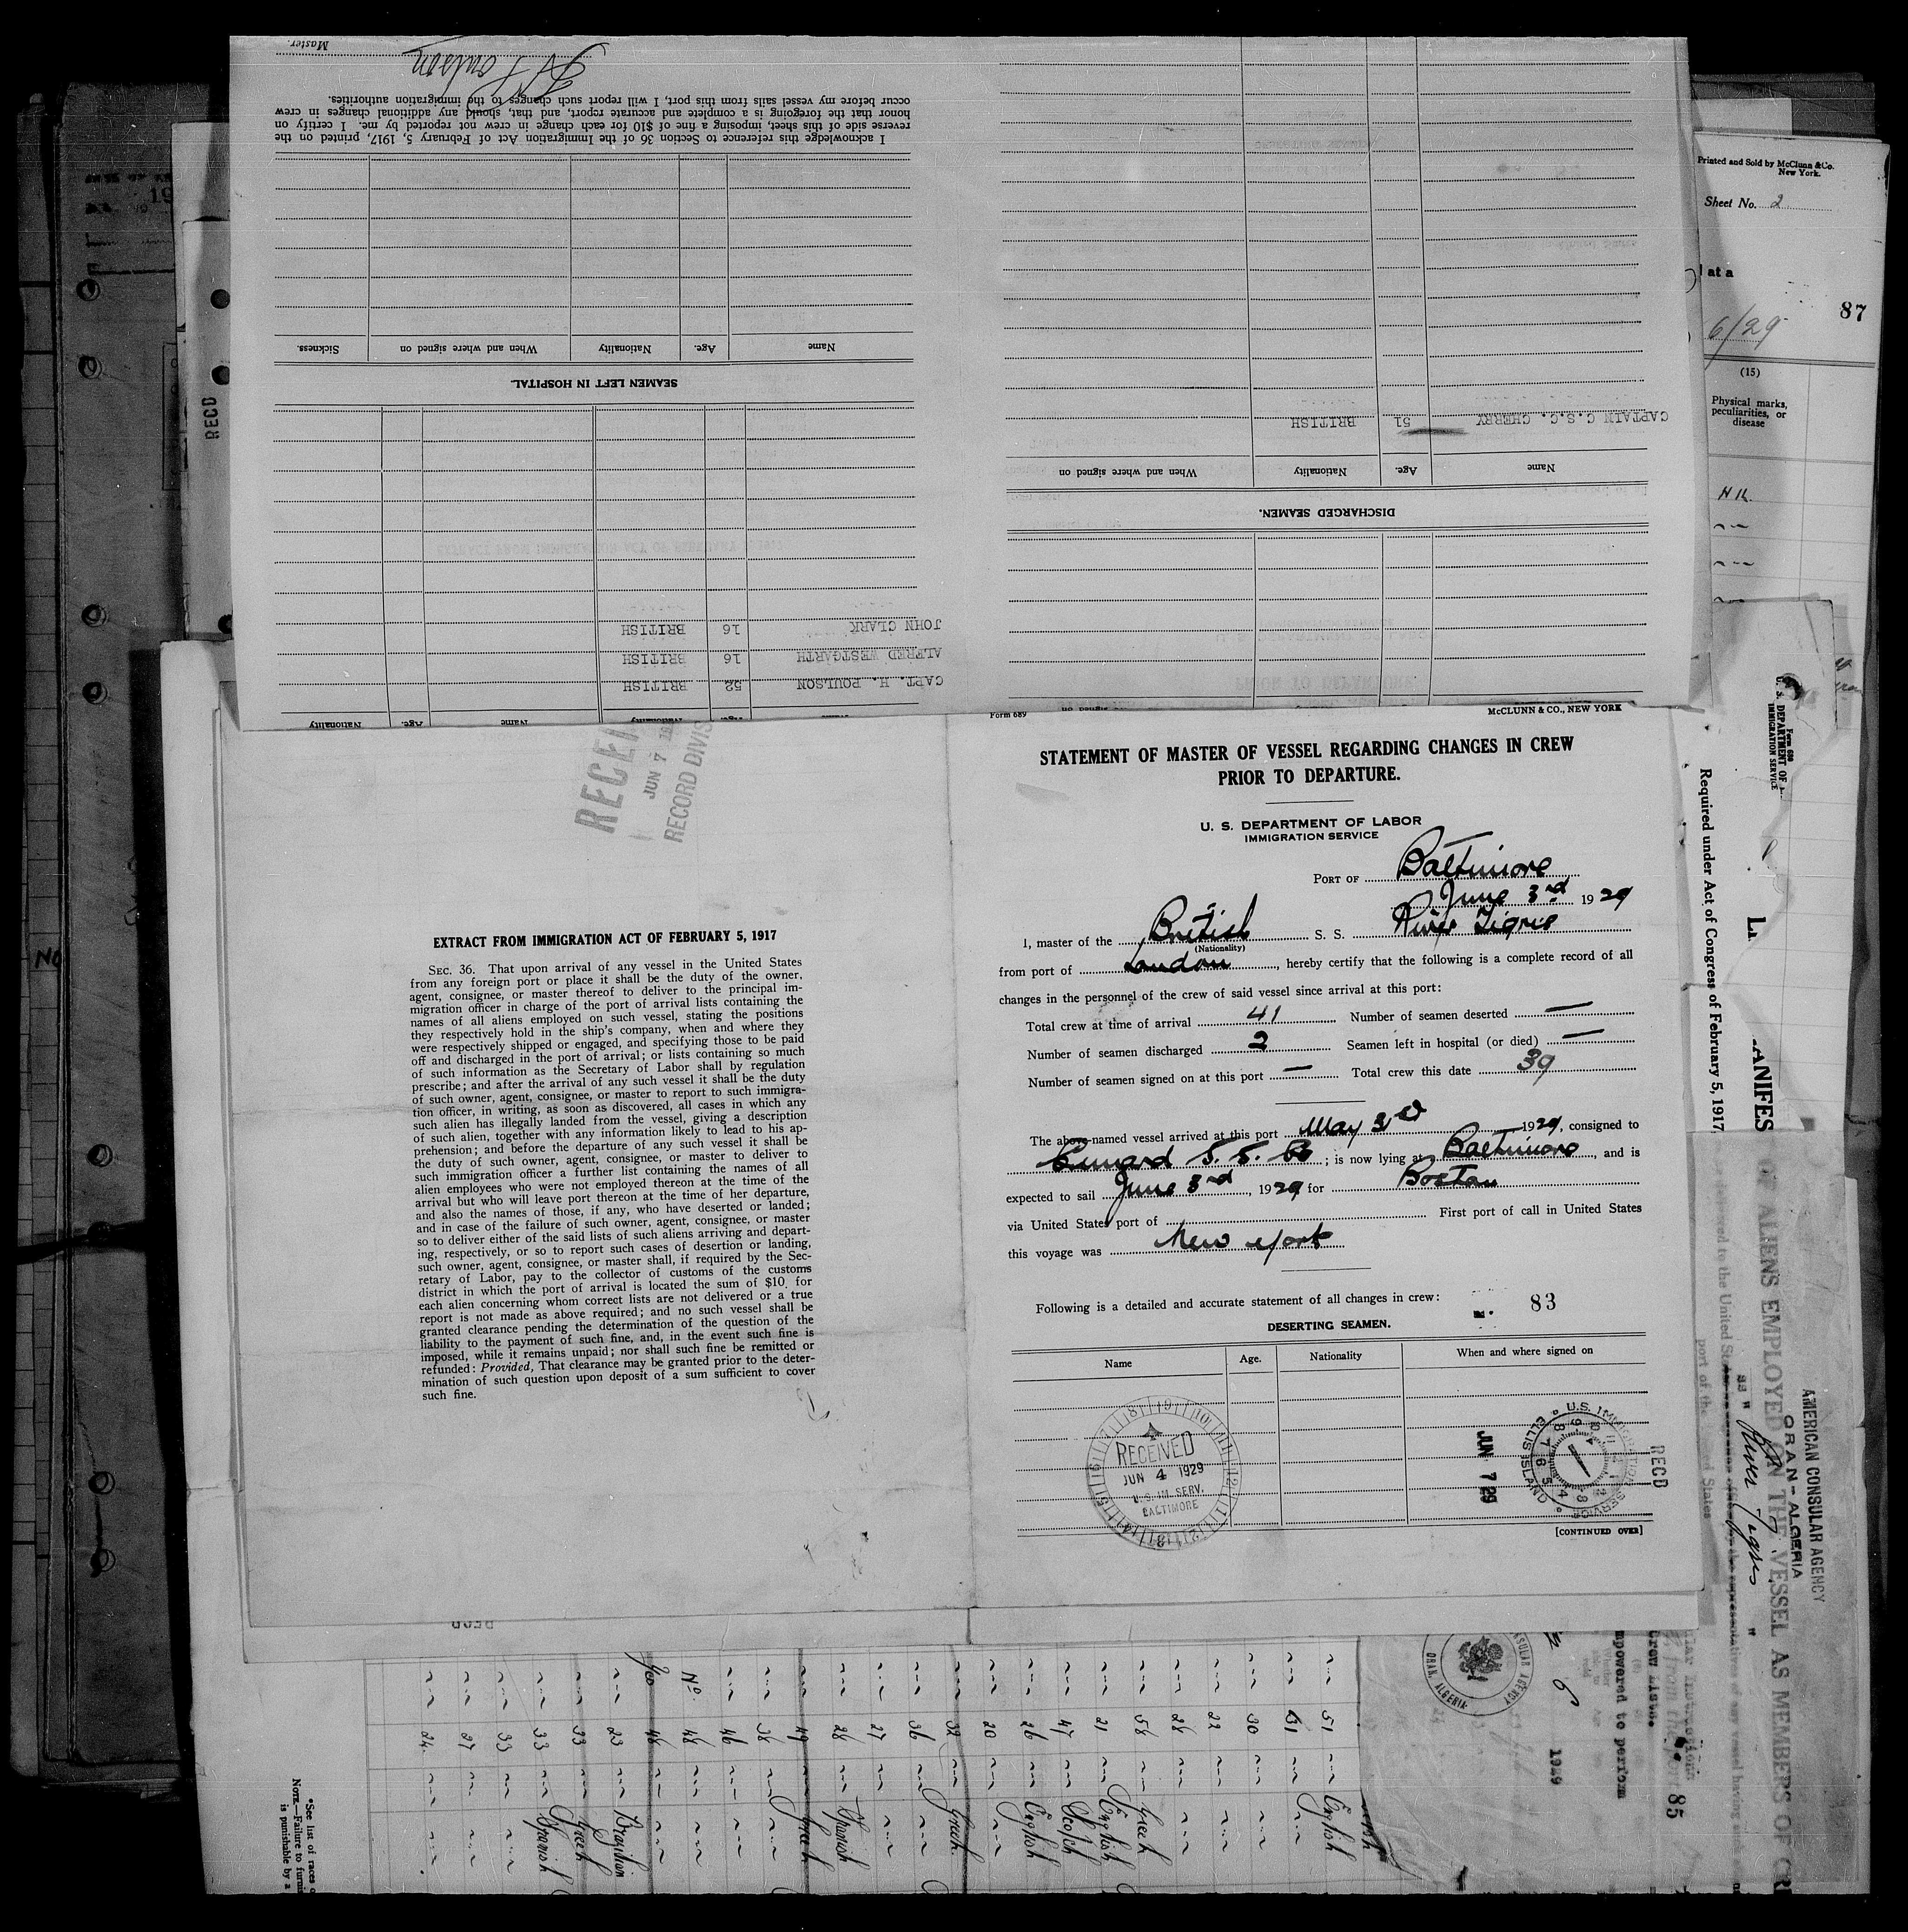 Master.
H Poulson
I acknowledge this reference to Section 36 of the Immigration Act of February 5, 1917, printed on the
reverse side of this sheet, imposing a fine of $10 for each change in crew not reported by me. I certify on
honor that the foregoing is a complete and accurate report, and that, should any additional changes in crew
occur before my vessel sails from this port, I will report such changes to the immigration authorities.
Name Age. Nationality When and where signed on Sickness.
SEAMEN LEFT IN HOSPITAL.
JOHN CLARK 16 BRITISH
ALFRED WESTGARTH 16 BRITISH
CAPT. H. POULSON 52 BRITISH
Name Age. Nationality
CAPTAIN C.S.C. CHERRY 51 BRITISH
Name Age. Nationality When and where signed on
DISCHARGED SEAMEN.
Printed and Sold by McClunn & Co.
New York.
Sheet No. 2
at a
87
6/29
(15)
Physical marks,
peculiarities, or
disease
Nil
RECD
RECEI
JUN 7
RECORD DIVIS
EXTRACT FROM IMMIGRATION ACT OF FEBRUARY 5, 1917
SEC. 36. That upon arrival of any vessel in the United States
from any foreign port or place it shall be the duty of the owner,
agent, consignee, or master thereof to deliver to the principal im-
migration officer in charge of the port of arrival lists containing the
names of all aliens employed on such vessel, stating the positions
they respectively hold in the ship's company, when and where they
were respectively shipped or engaged, and specifying those to be paid
off and discharged in the port of arrival; or lists containing so much
of such information as the Secretary of Labor shall by regulation
prescribe; and after the arrival of any such vessel it shall be the duty
of such owner, agent, consignee, or master to report to such immigra-
tion officer, in writing, as soon as discovered, all cases in which any
such alien has illegally landed from the vessel, giving a description
of such alien, together with any information likely to lead to his ap-
prehension; and before the departure of any such vessel it shall be
the duty of such owner, agent, consignee, or master to deliver to
such immigration officer a further list containing the names of all
alien employees who were not employed thereon at the time of the
arrival but who will leave port thereon at the time of her departure,
and also the names of those, if any, who have deserted or landed;
and in case of the failure of such owner, agent, consignee, or master
so to deliver either of the said lists of such aliens arriving and depart-
ing, respectively, or so to report such cases of desertion or landing,
such owner, agent, consignee, or master shall, if required by the Sec-
retary of Labor, pay to the collector of customs of the customs
district in which the port of arrival is located the sum of $10 for
each alien concerning whom correct lists are not delivered or a true
report is not made as above required; and no such vessel shall be
granted clearance pending the determination of the question of the
liability to the payment of such fine, and, in the event such fine is
imposed, while it remains unpaid; nor shall such fine be remitted or
refunded: Provided, That clearance may be granted prior to the deter-
mination of such question upon deposit of a sum sufficient to cover
such fine.
Form 689 McCLUNN & CO., NEW YORK
STATEMENT OF MASTER OF VESSEL REGARDING CHANGES IN CREW
PRIOR TO DEPARTURE.
U. S. DEPARTMENT OF LABOR
IMMIGRATION SERVICE
PORT OF Baltimore
June 3rd 1929
I, master of the British S. S. River Tigris
(Nationality)
from port of London, hereby certify that the following is a complete record of all
changes in the personnel of the crew of said vessel since arrival at this port:
Total crew at time of arrival 41 Number of seamen deserted —
Number of seamen discharged 2 Seamen left in hospital (or died) —
Number of seamen signed on at this port — Total crew this date 39
The above-named vessel arrived at this port May 3rd 1929, consigned to
Cunard S. S. Co; is now lying at Baltimore, and is
expected to sail June 3rd, 1929 for Boston
via United States port of First port of call in United States
this voyage was New York
Following is a detailed and accurate statement of all changes in crew: 83
DESERTING SEAMEN.
Name Age. Nationality When and where signed on
RECEIVED
JUN 4 1929
U.S. IM. SERV.
BALTIMORE
JUN 7 29
U.S. IMMIGRATION SERVICE
ELLIS ISLAND
RECD
[CONTINUED OVER]
Form 680
U. S. DEPARTMENT OF L
IMMIGRATION SERVICE
Required under Act of Congress of February 5, 1917
ANIFES
ALIENS EMPLOYED ON THE VESSEL AS MEMBERS OF CR
port of the United States
SS " River Tigris "
AMERICAN CONSULAR AGENCY
ORAN - ALGERIA
mpowered to perform
Crew Lists.
85
1929
Yes No
24 27 33 33 33 23 48 48 46 38 49 28 27 36 32 20 26 47 21 58 28 22 30 31 51
Spanish Greek Brazilian Greek Spanish Greek English Scotch English Greek English
*See list of races
NOTE.—Failure to furni
is punishable by a